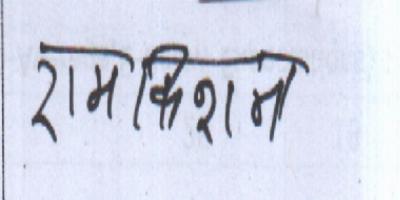 रामकिशन